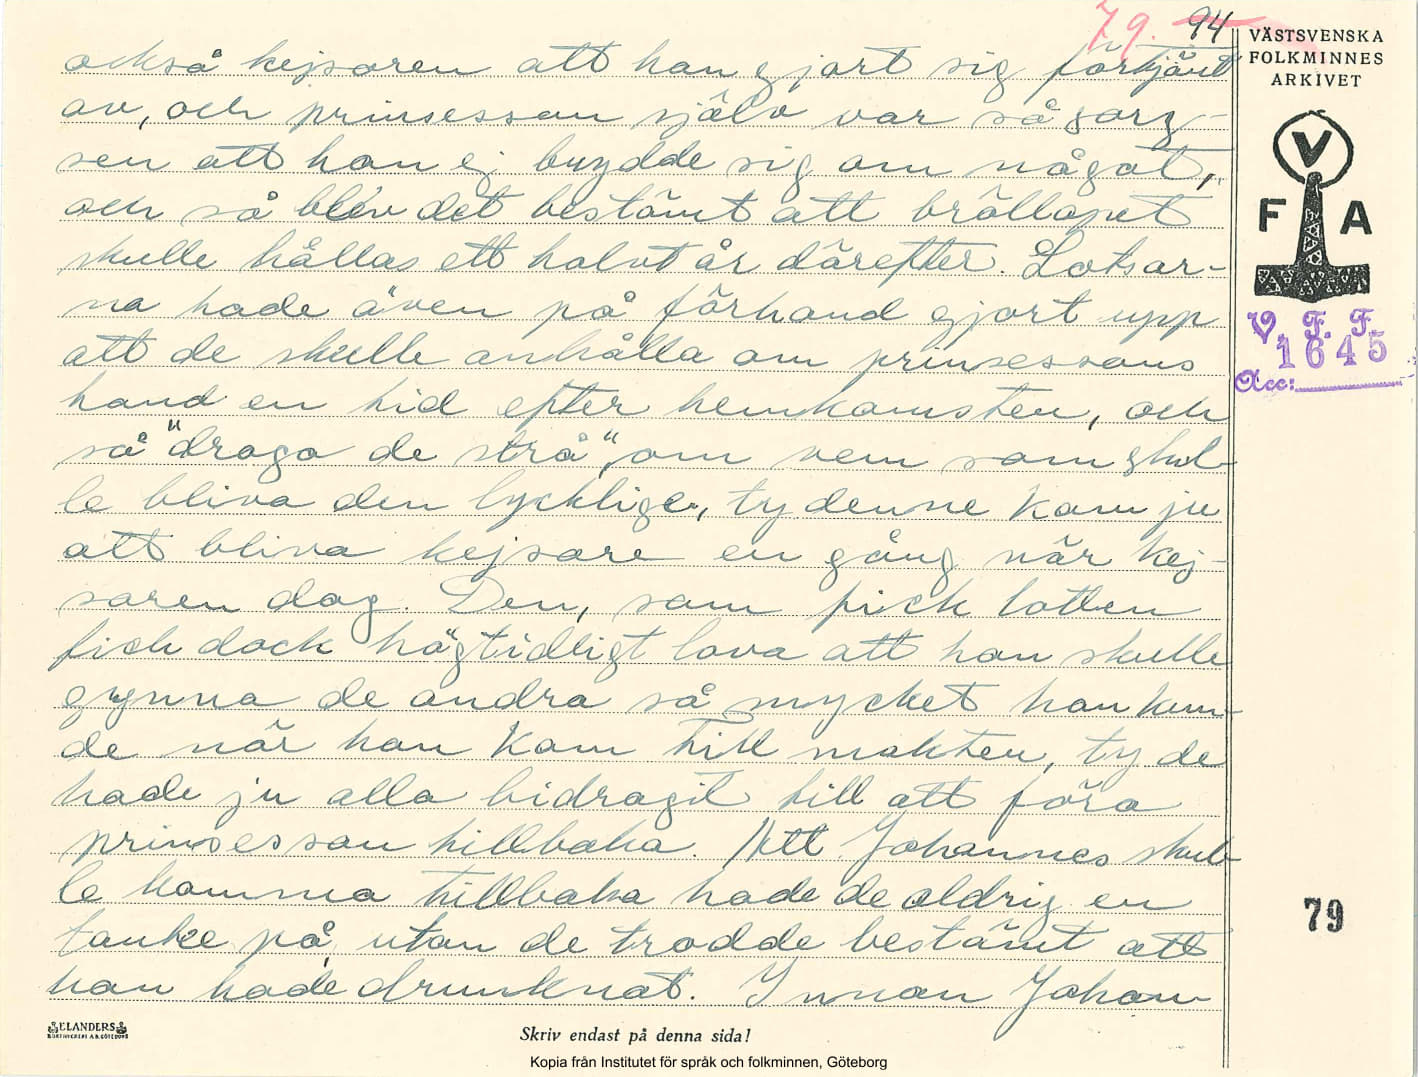 79. 94
också kejsaren att han gjort sig förtjänt
av, och prinsessan själv var så sorg-
sen att hon ej brydde sig om något,
och så blev det bestämt att bröllopet
skulle hållas ett halvt år därefter. Lotsar-
na hade även på förhand gjort upp
att de skulle anhålla om prinsessans
hand en tid efter hemkomsten, och
så "drogo de strå", om vem som skul-
le bliva den lycklige, ty denne kom ju
att bliva kejsare en gång när kej-
saren dog. Den, som fick lotten
fick dock högtidligt lova att han skulle
gynna de andra så mycket han kun-
de när han kom till makten, ty de
hade ju alla bidragit till att föra
prinsessan tillbaka. Att Johannes skul-
le komma tillbaka hade de aldrig en
tanke på, utan de trodde bestämt att
han hade drunknat. Innan Johan-
VÄSTSVENSKA
FOLKMINNES
ARKIVET
V
F A
V. F. F.
1645
Acc:
79
ELANDERS
BOKTRYCKERI A.B. GÖTEBORG
Skriv endast på denna sida!
Kopia från Institutet för språk och folkminnen, Göteborg